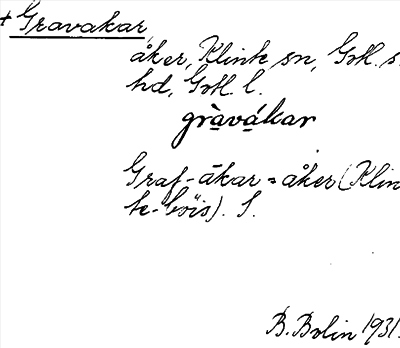 + Gravakar
åker, Klinte sn, Gotl. s.
hd, Gotl. l.
gràvákar
Graf-åkar = åker (Klin
te-böis). S.
B. Bolin 1931.